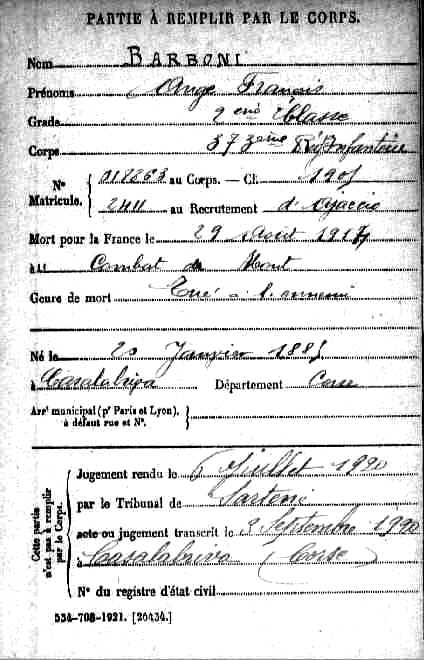 PARTIE À REMPLIR PAR LE CORPS.
Nom BARBONI
Prénoms Ange François
Grade 2eme Classe
Corps 373eme Rég Infanterie
Nº Matricule. { 018263 au Corps. — Cl. 1905
2411 au Recrutement d'Ajaccio
Mort pour la France le 29 Août 1914
à Combat de
Genre de mort Tué à l'ennemi
Né le Janvier 1885
à Casalabriva Département Corse
Arrt municipal (pr Paris et Lyon), à défaut rue et Nº. }
Cette partie n'est pas à remplir par le Corps. {
Jugement rendu le 6 Juillet 1920
par le Tribunal de Sartene
acte ou jugement transcrit le 3 Septembre 1920
à Casalabriva (Corse)
Nº du registre d'état civil
534-708-1921. [26434.]